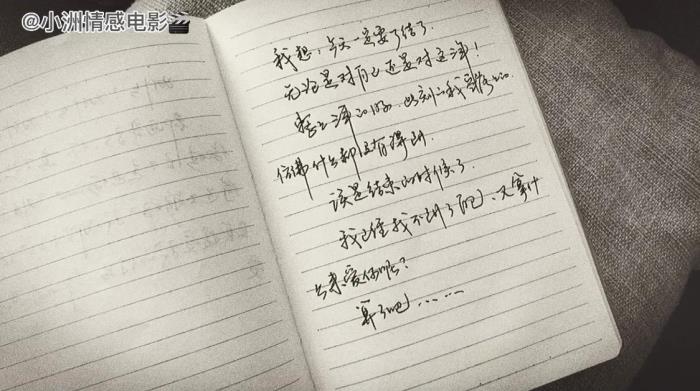 @小洲情感电影🎬
我想，今天一定要了结了．
无论是对自己还是对这净！
整整净20的，此刻的我
仿佛什么都没有得到．
该是结束的时候了．
我已经找不到了自己、又拿什
么来爱你呢？
算了吧……